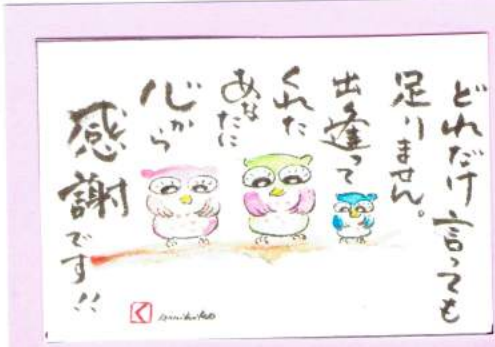 どれだけ言っても
足りません。
出逢って
くれた
あなたに
心から
感謝です!!
く